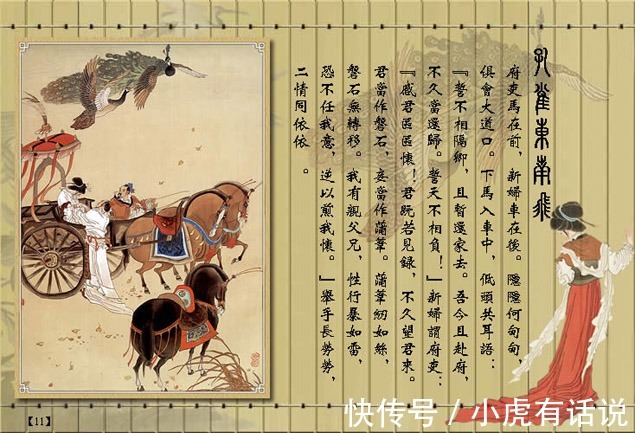 孔雀東南飛
府吏馬在前,新婦車在後。隱隱何甸甸,
俱會大道口。下馬入車中,低頭共耳語:
『誓不相隔卿,且暫還家去。吾今且赴府,
不久當還歸。誓天不相負!』新婦謂府吏:
『感君區區懷!君既若見録,不久望君來。
君當作磐石,妾當作蒲葦。蒲葦紉如絲,
磐石無轉移。我有親父兄,性行暴如雷,
恐不任我意,逆以煎我懷。』舉手長勞勞,
二情同依依。
【11】
快传号 / 小虎有话说